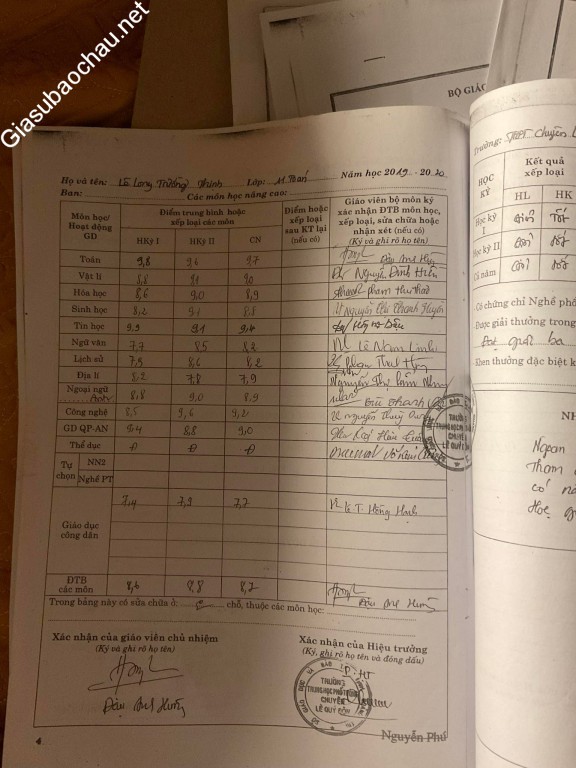 Giasubaochau.net
BỘ GIÁO
Họ và tên: Lê Long Trường Thịnh Lớp: 11 Toán Năm học 2019 - 2020
Ban: Các môn học nâng cao:
Môn học/ Hoạt động GD
Điểm trung bình hoặc xếp loại các môn
HKỳ I HKỳ II CN
Điểm hoặc xếp loại sau KT lại (nếu có)
Giáo viên bộ môn ký xác nhận ĐTB môn học, xếp loại, sửa chữa hoặc nhận xét (nếu có)
(Ký và ghi rõ họ tên)
Toán 9,8 9,6 9,7
Vật lí 8,8 9,1 9,0 Nguyễn Đình Hiền
Hóa học 8,6 9,0 8,9
Sinh học 8,2 9,1 8,8 Nguyễn
Tin học 9,9 9,1 9,4
Ngữ văn 7,7 8,5 8,2 Lê Nam Linh
Lịch sử 7,3 8,6 8,2
Địa lí 8,2 7,8 7,9 Nguyễn Thị
Ngoại ngữ Anh 8,8 9,0 8,9
Công nghệ 8,5 9,6 9,2 Nguyễn Thuỳ
GD QP-AN 9,4 8,8 9,0
Thể dục Đ Đ Đ
Tự chọn
NN2
Nghề PT
Giáo dục công dân 7,4 7,9 7,7 Lê T. Hồng Hạnh
ĐTB các môn 8,6 8,8 8,7
Trong bảng này có sửa chữa ở: chỗ, thuộc các môn học:
Xác nhận của giáo viên chủ nhiệm
(Ký, ghi rõ họ tên)
Xác nhận của Hiệu trưởng
(Ký, ghi rõ họ tên và đóng dấu)
P. HT
TRƯỜNG
TRUNG HỌC PHỔ THÔNG
CHUYÊN
LÊ QUÝ ĐÔN
4
Nguyễn Phú
Trường: THPT Chuyên L
HỌC KỲ
Kết quả xếp loại
HL HK
Học kỳ I Giỏi Tốt
Học kỳ II Giỏi Tốt
Cả năm Giỏi Tốt
Có chứng chỉ Nghề phổ
Được giải thưởng trong
Đạt giải ba
Khen thưởng đặc biệt k
NH
Ngoan
Tham
có
Học
TRƯỜNG
TRUNG HỌC PHỔ
CHUYÊN
LÊ QUÝ ĐÔN